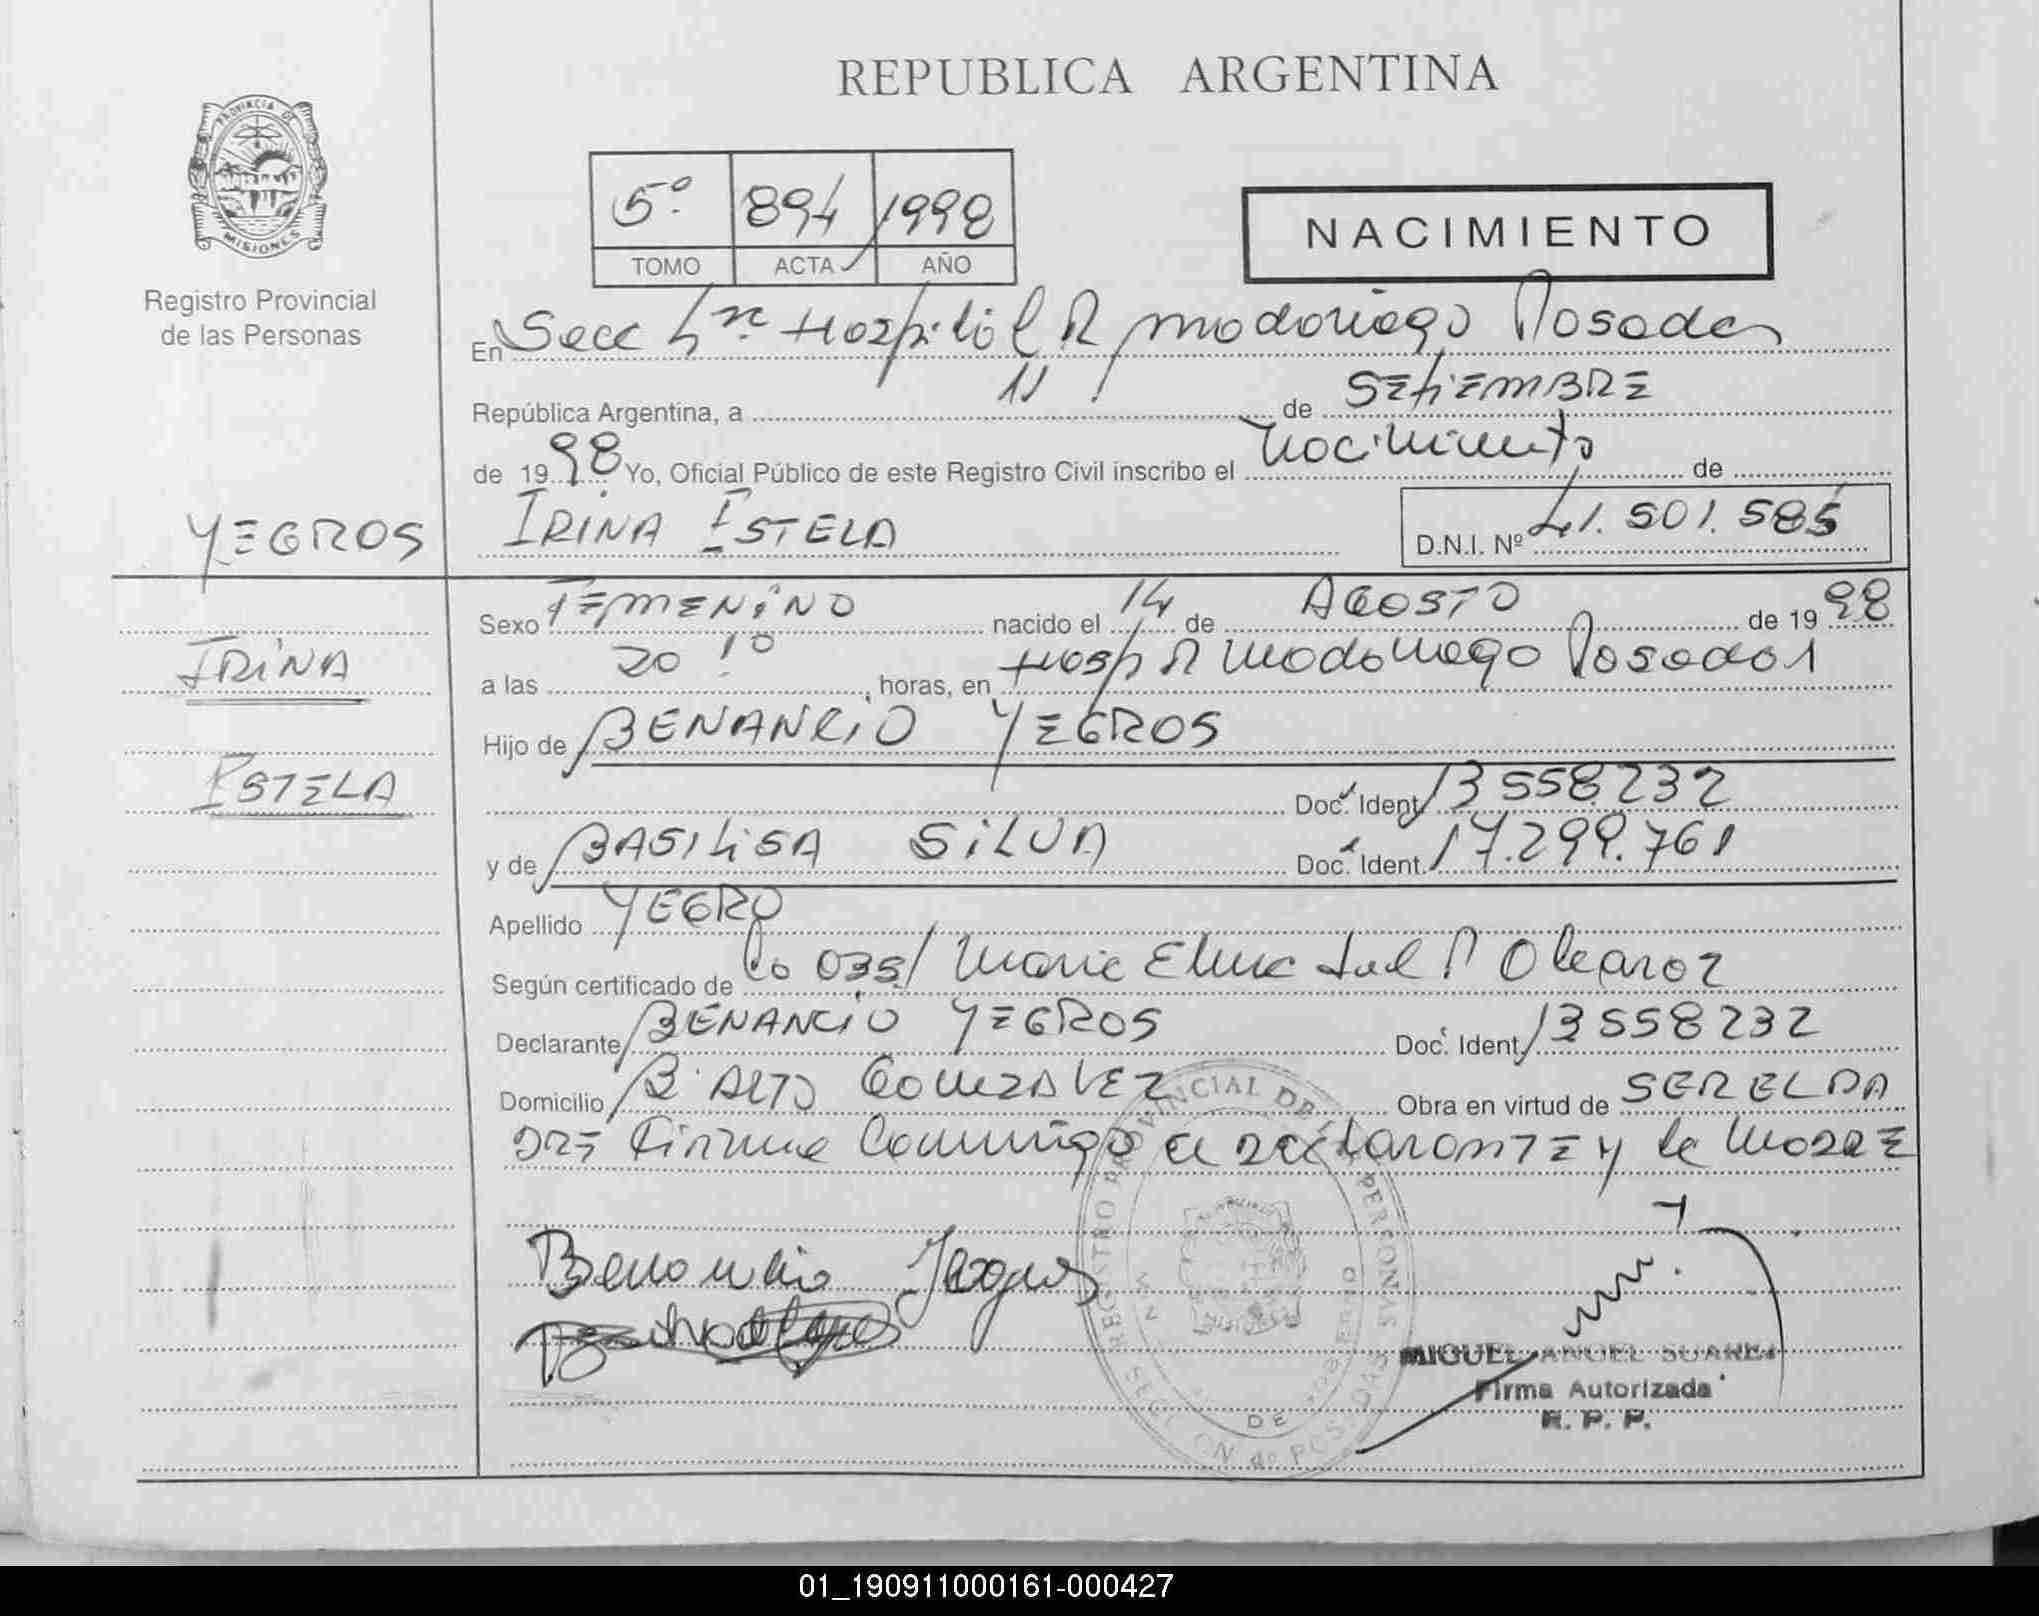 REPUBLICA ARGENTINA
PROVINCIA DE MISIONES
Registro Provincial
de las Personas
5º 894 1998
TOMO ACTA AÑO
NACIMIENTO
En Secc 4ta Hospital R madariaga Posadas
República Argentina, a 11 de SETIEMBRE
de 1998 Yo, Oficial Público de este Registro Civil inscribo el nacimiento de
YEGROS
IRINA ESTELA
D.N.I. Nº 41.501.585
IRINA
ESTELA
Sexo FEMENINO nacido el 14 de AGOSTO de 1998
a las 20 10, horas, en Hosp R Madariaga Posadas
Hijo de BENANCIO YEGROS
Doc. Ident. 13558232
y de BASILISA SILVA Doc. Ident. 17.299.761
Apellido YEGRO
Según certificado de 035/ Maria Olearoz
Declarante BENANCIO YEGROS Doc. Ident. 13558232
Domicilio B. ALTO GONZALEZ Obra en virtud de SER EL PA
DRE Firman Conmigo el declarante y la MADRE
Benancio Yegros
REGISTRO PROVINCIAL DE LAS PERSONAS
SECCION 4º POSADAS
MIGUEL ANGEL SUAREZ
Firma Autorizada
R. P. P.
01_190911000161-000427